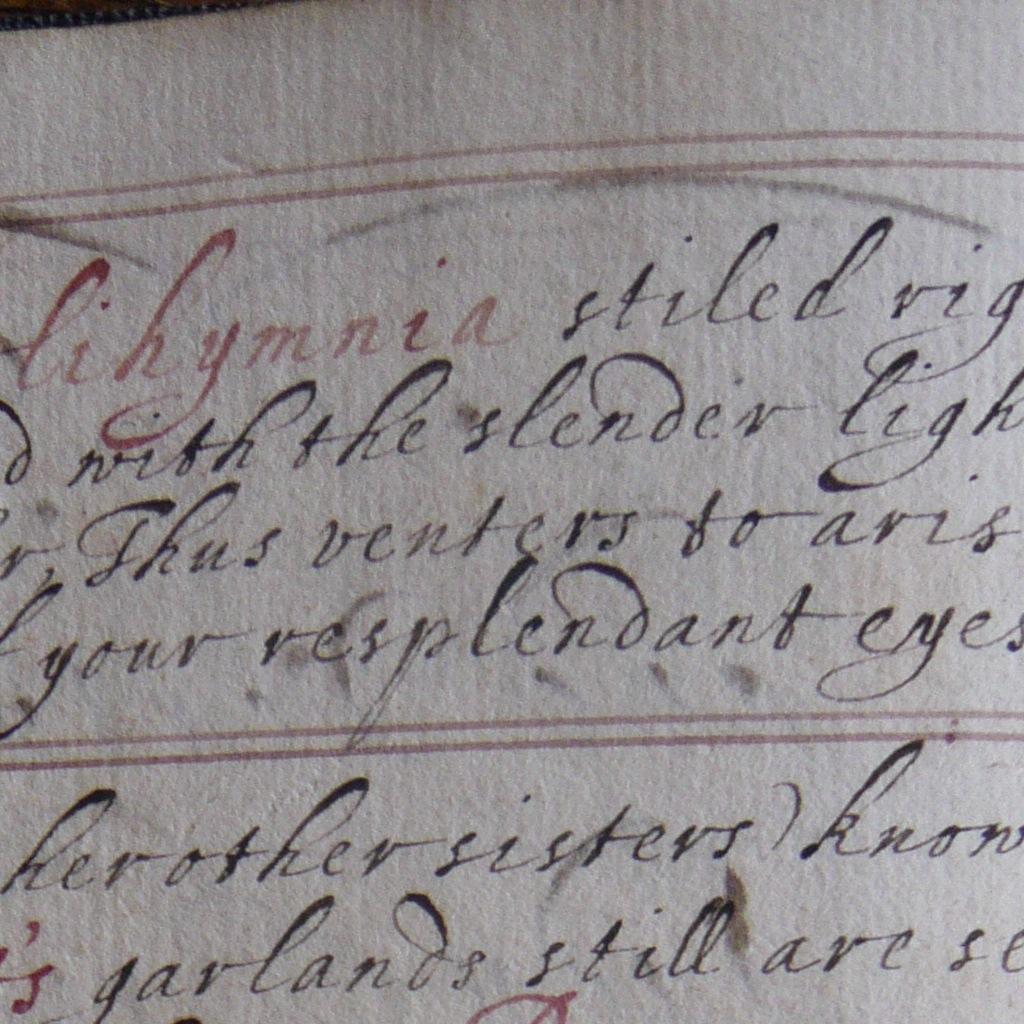 lihymnia stiled rig
d with the slender ligh
r, Thus venters to aris
f your resplendant eyes
her other sisters) know
's garlands still are se